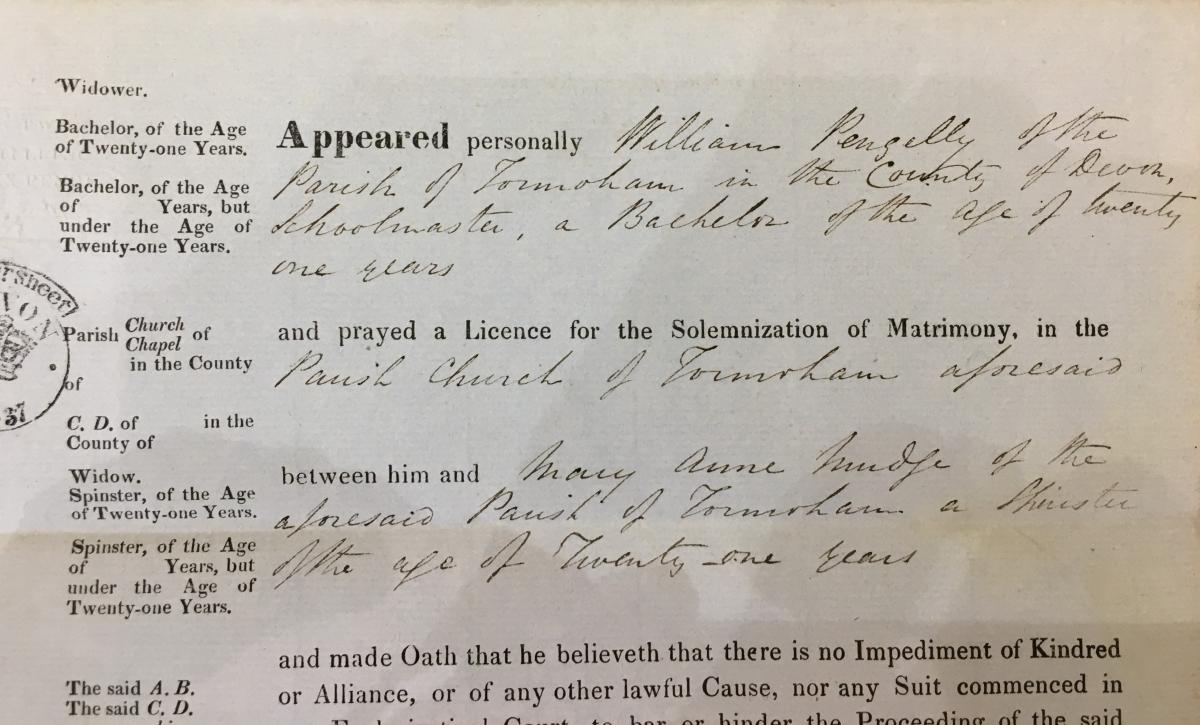 Widower.
Bachelor, of the Age
of Twenty-one Years.
Bachelor, of the Age
of Years, but
under the Age of
Twenty-one Years.
Appeared personally William Pengelly of the
Parish of Tormoham in the County of Devon,
Schoolmaster, a Bachelor of the age of twenty
one years
Parish Church of
Chapel
in the County
of
and prayed a Licence for the Solemnization of Matrimony, in the
Parish Church of Tormoham aforesaid
C. D. of in the
County of
Widow.
Spinster, of the Age
of Twenty-one Years.
Spinster, of the Age
of Years, but
under the Age of
Twenty-one Years.
between him and Mary Anne Mudge of the
aforesaid Parish of Tormoham a Spinster
of the age of Twenty-one years
and made Oath that he believeth that there is no Impediment of Kindred
or Alliance, or of any other lawful Cause, nor any Suit commenced in
Court, to bar or hinder the Proceeding of the said
The said A. B.
The said C. D.
37